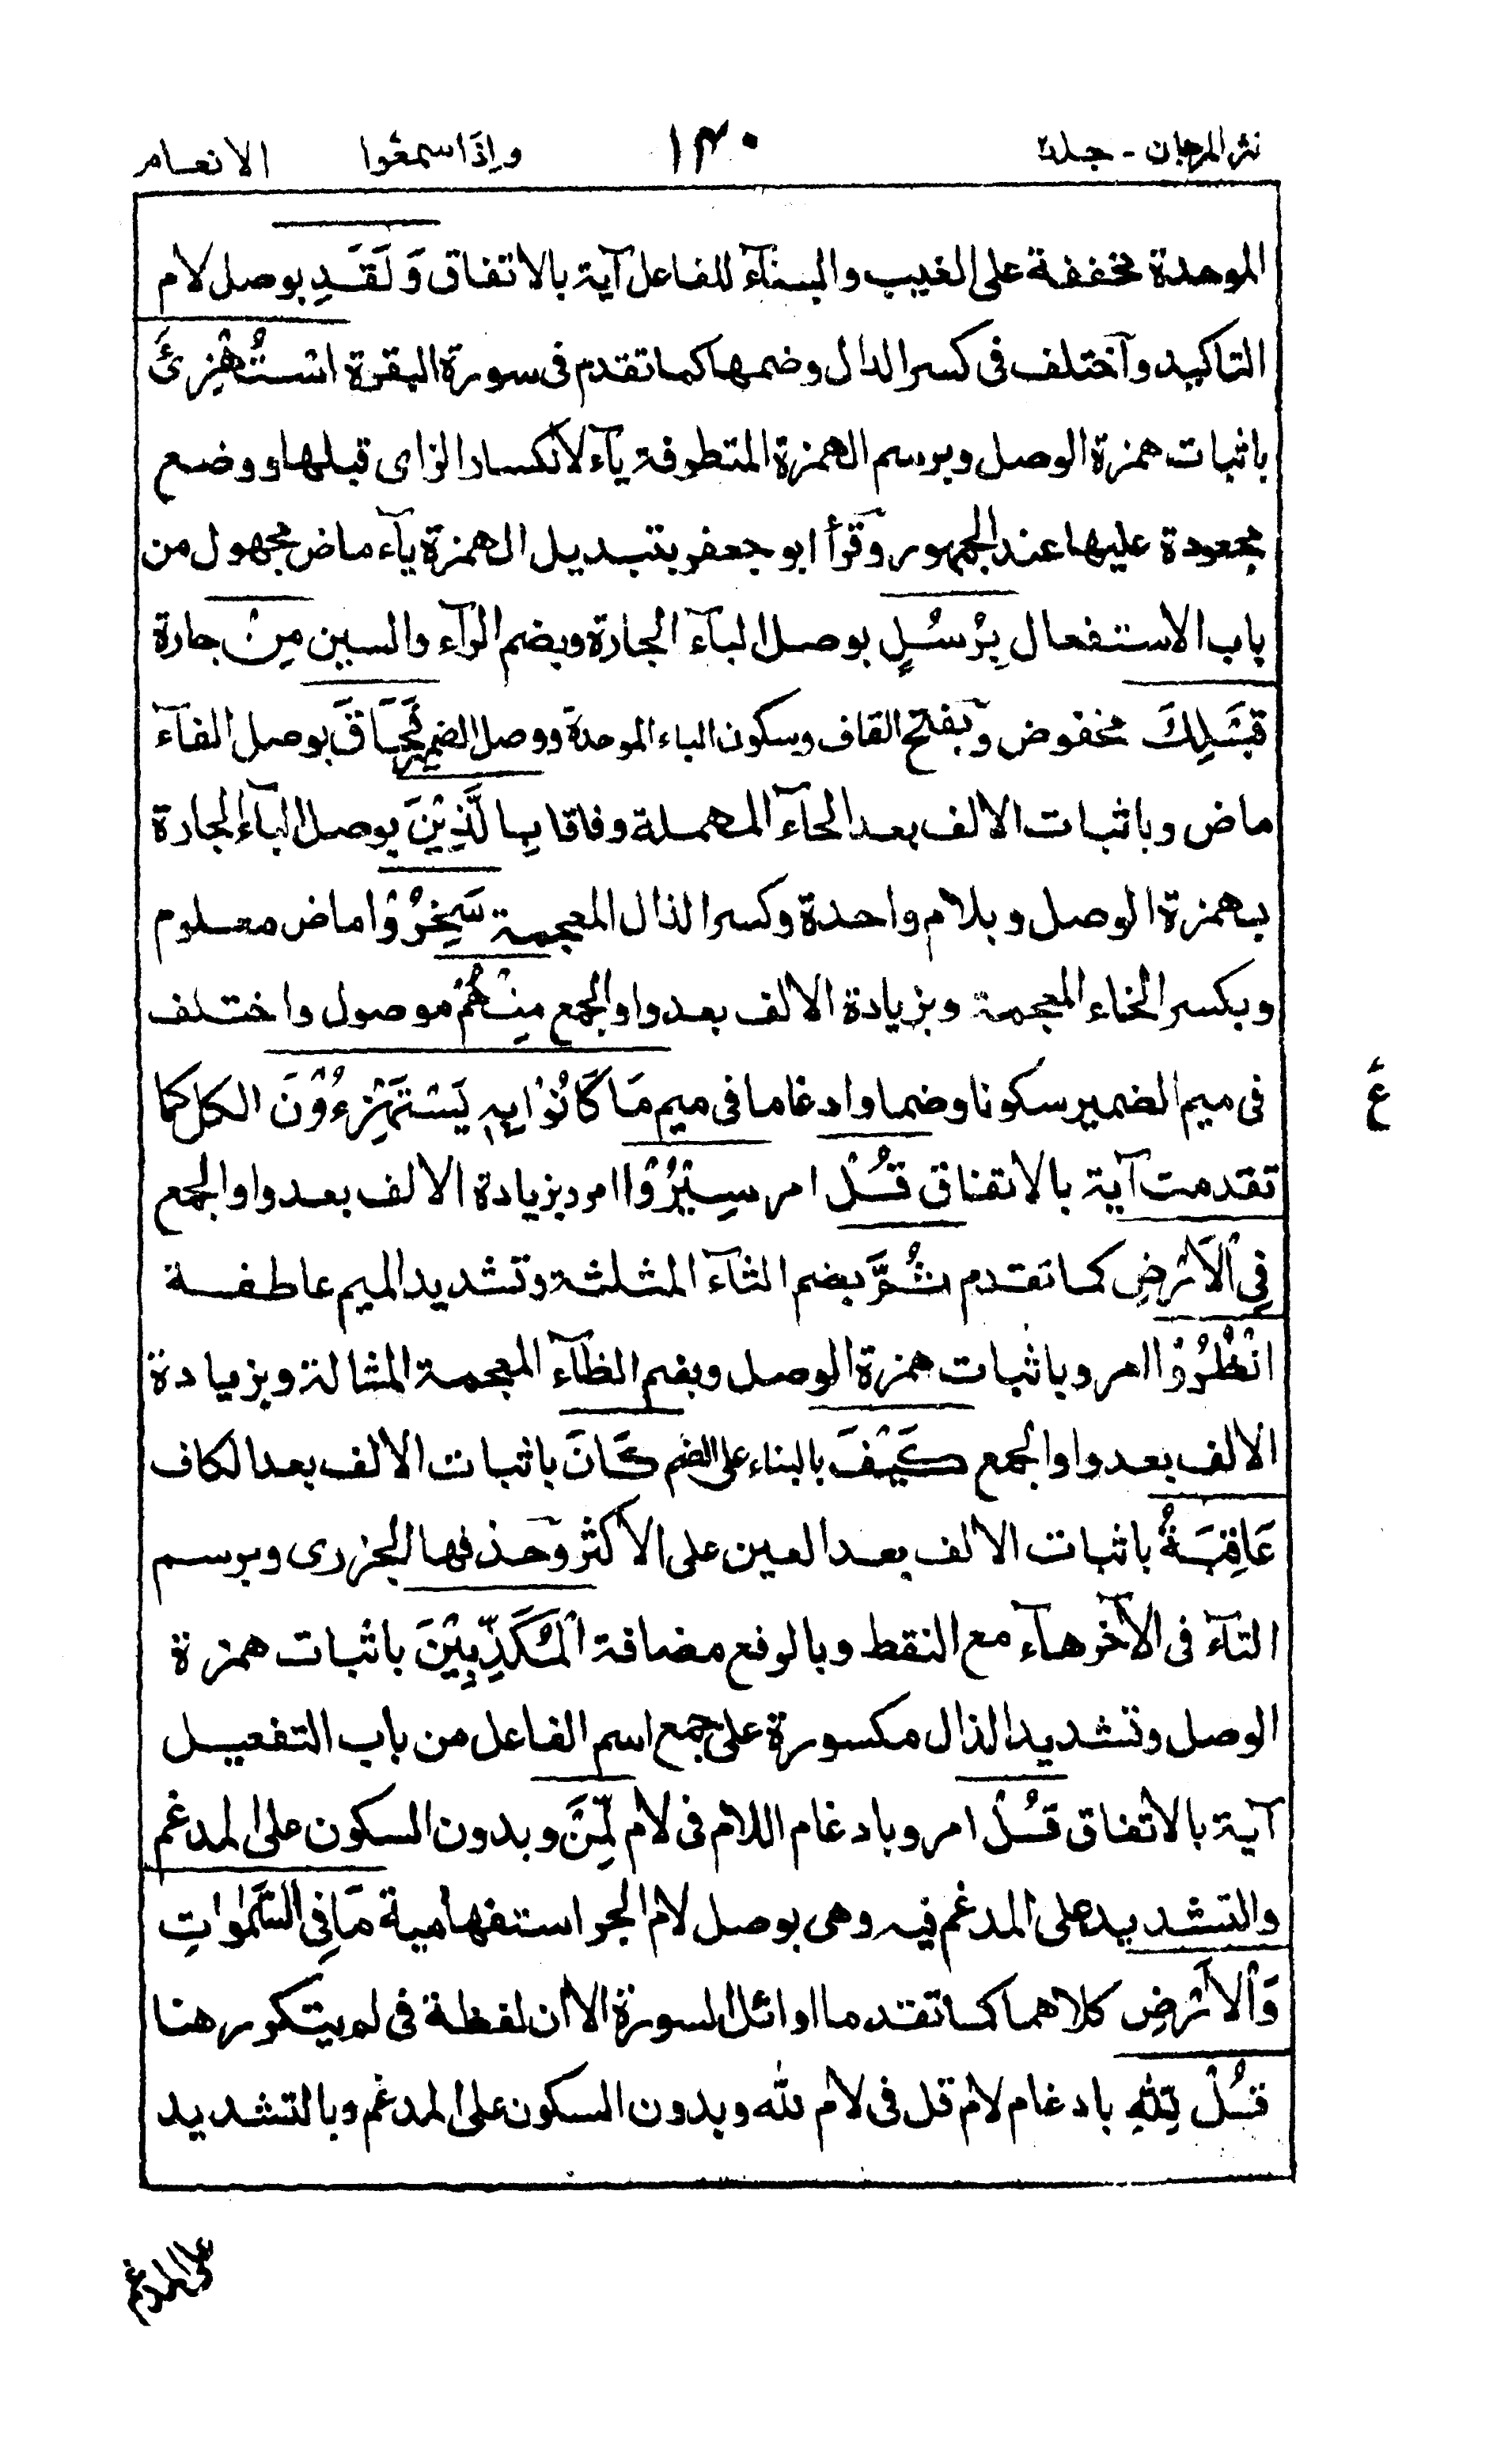 نثر المرجان - جلد٢ ١٣٠ واذا سمعوا الانعام
الموحدة مخففة على الغيب والبنآء للفاعل آية بالاتفاق وَلَقَدِ بوصل لام
التاكيد وآختلف فى كسر الدال وضمها كما تقدم فى سورة البقرة اسْتُهْزِئَ
باثبات همزة الوصل وبرسم الهمزة المتطرفة يآء لانكسار الزاى قبلها ووضع
مجعودة عليها عند الجمهور وقرأ ابو جعفر بتبديل الهمزة يآء ماض مجهول من
باب الاستفعال بِرُسُلٍ بوصل البآء الجارة وبضم الرآء والسين مِنْ جارة
قَبْلِكَ مخفوض وبفتح القاف وسكون الباء الموحدة ووصل الضمير فَحَاقَ بوصل الفآء
ماض وباثبات الالف بعد الحآء المهملة وفاقا بِالَّذِيْنَ بوصل البآء الجارة
بهمزة الوصل وبلام واحدة وكسر الذال المعجمة سَخِرُوْا ماض معلوم
وبكسر الخاء المعجمة وبزيادة الالف بعد واو الجمع مِنْهُمْ موصول واختلف
فى ميم الضمير سكونا وضما وادغاما فى ميم مَا كَانُوْا بِهٖ يَسْتَهْزِءُوْنَ الكل كما
ع
تقدمت آية بالاتفاق قُلْ امر سِيْرُوْا امر وبزيادة الالف بعد واو الجمع
فِى الْاَرْضِ كما تقدم ثُمَّ بضم الثآء المثلثة وتشديد الميم عاطفة
انْظُرُوْا امر وباثبات همزة الوصل وبضم الظآء المعجمة المشالة وبزيادة
الالف بعد واو الجمع كَيْفَ بالبناء على الضم كَانَ باثبات الالف بعد الكاف
عَاقِبَةُ باثبات الالف بعد العين على الاكثر وحذفها الجزرى وبرسم
التآء فى الآخر هآء مع النقط وبالرفع مضافة الْمُكَذِّبِيْنَ باثبات همزة
الوصل وتشديد الذال مكسورة على جمع اسم الفاعل من باب التفعيل
آية بالاتفاق قُلْ امر وبادغام اللام فى لام لِّمَنْ وبدون السكون على المدغم
والتشديد على المدغم فيه وهى بوصل لام الجر استفهامية مَا فِى السَّمٰوٰاتِ
وَالْاَرْضِ كلاهما كما تقدما اوائل السورة الا ان لفظة فى لم يتكرر هنا
قُلْ لِلّٰهِ بادغام لام قل فى لام لله وبدون السكون على المدغم وبالتشديد
على المدغم